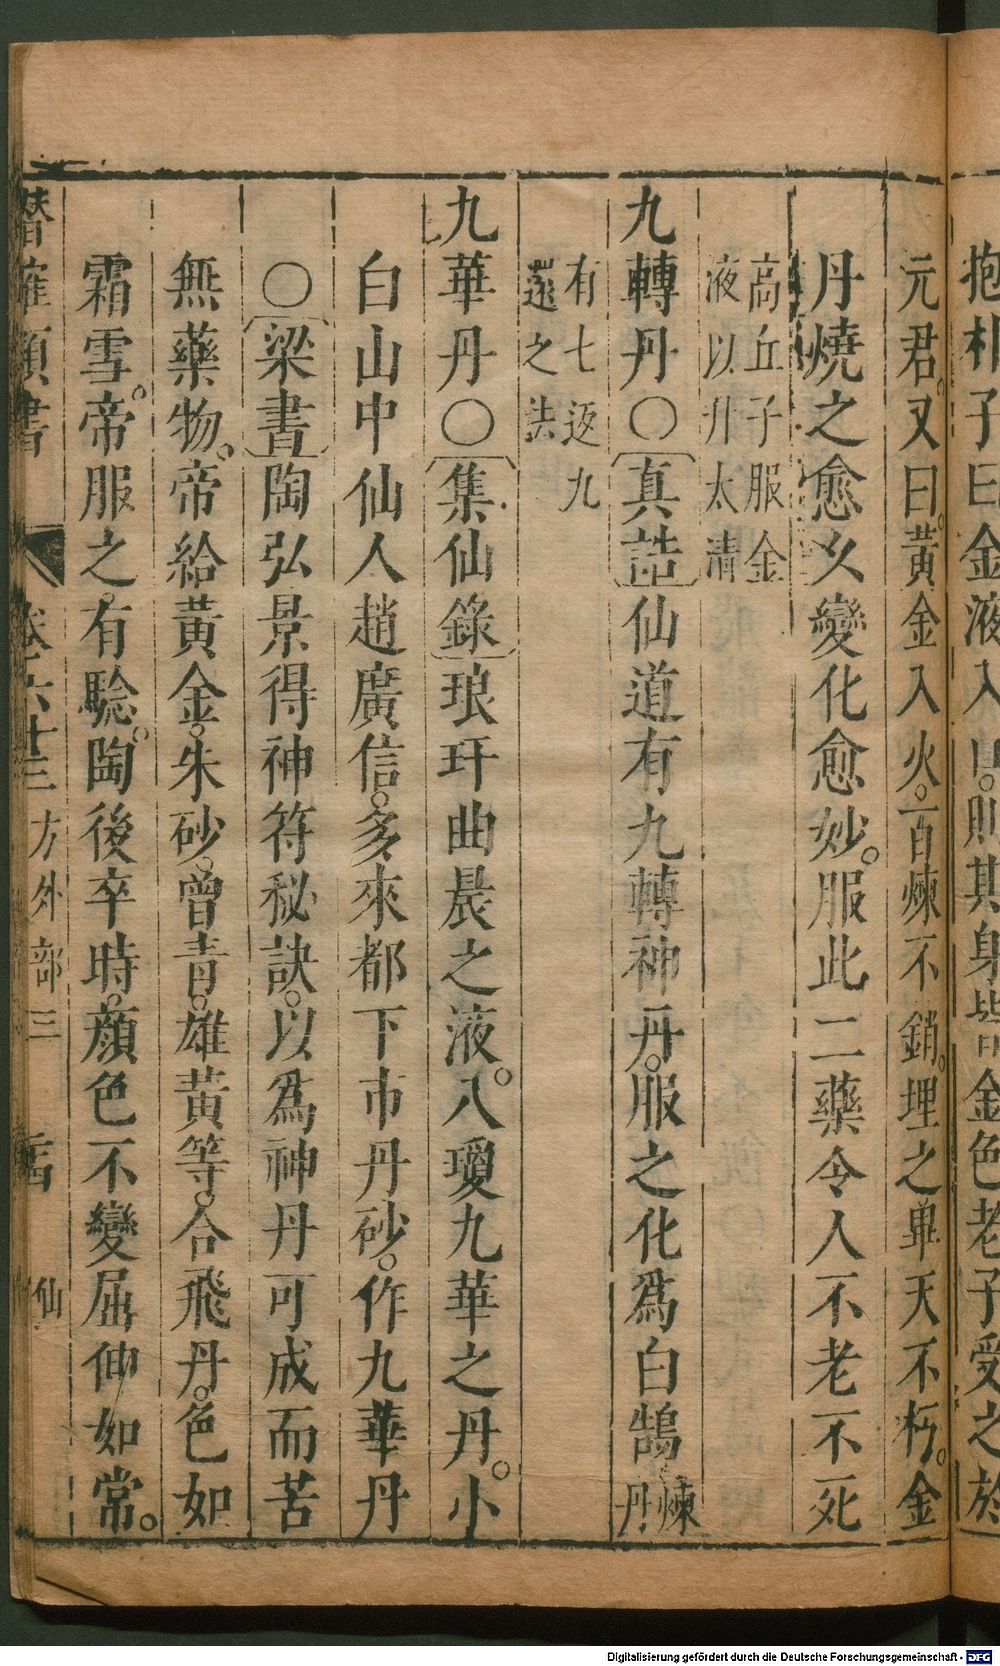 抱朴子曰金液入口則其身皆金色老子受之於
元君又曰黃金入火百煉不銷埋之畢天不朽金
丹燒之愈久變化愈妙服此二藥令人不老不死
高丘子服金
液以升太清
九轉丹○真誥仙道有九轉神丹服之化爲白鵠煉丹
有七返九
還之法
九華丹○集仙錄琅玕曲晨之液八瓊九華之丹小
白山中仙人趙廣信多來都下市丹砂作九華丹
○梁書陶弘景得神符秘訣以爲神丹可成而苦
無藥物帝給黃金朱砂曾青雄黃等合飛丹色如
霜雪帝服之有騐陶後卒時顔色不變屈伸如常
潛確類書 卷六十三 方外部三 仙
Digitalisierung gefördert durch die Deutsche Forschungsgemeinschaft - DFG